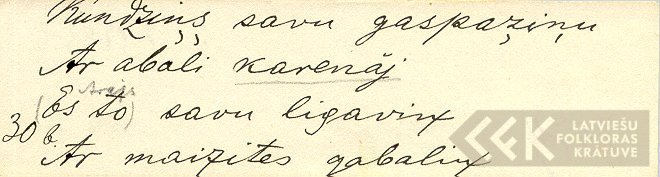 Kundziņš savu gaspaziņu
Ar aboli karenāj
Arājs
(Es to) savu ligaviņ
30 b.
Ar maizites gabaliņ
LATVIEŠU
FOLKLORAS
KRĀTUVE